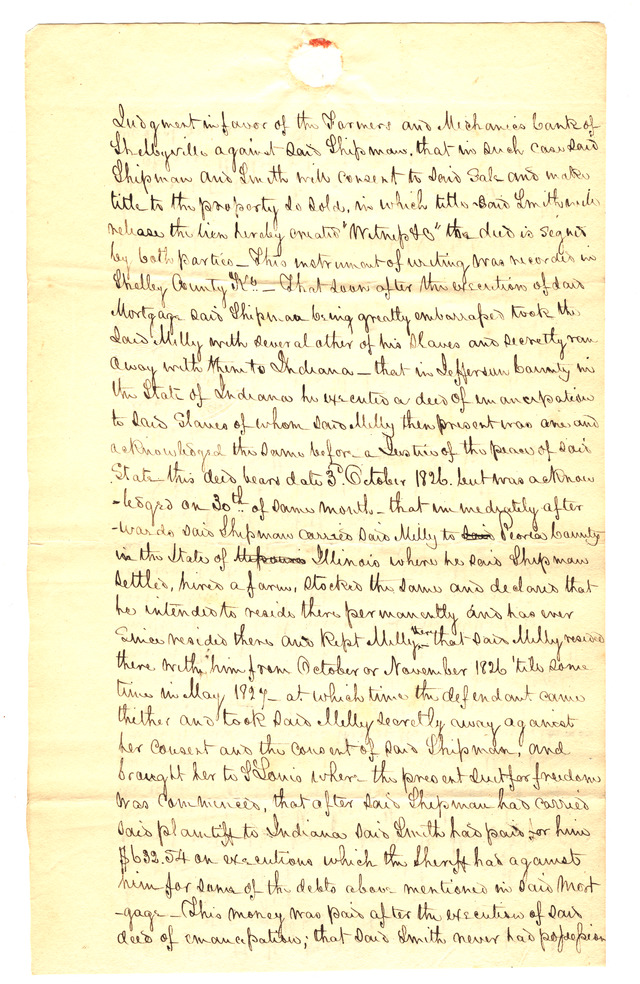 Judgment in favor of the Farmers and Mechanics bank of
Shelbyville against said Shipman. that in such case said
Shipman and Smith will consent to said Sale and make
title to the property so sold, in which title said Smith will
release the lien hereby created "Witness &C" the deed is signed
by both parties – This instrument of writing was recorded in
Shelby County Ky. – That soon after the execution of said
Mortgage said Shipman being greatly embarrassed took the
said Milly with several other of his slaves and secretly ran
away with them to Indiana – that in Jefferson County in
the State of Indiana he executed a deed of emancipation
to said Slaves of whom said Milly then present was one and
acknowledged the same before a Justice of the peace of said
State this deed bears date 3d. October 1826. but was acknow
-ledged on 30th of same month – that immediately after
-wards said Shipman carried said Milly to said Peoria County
in the State of Missouri Illinois where he said Shipman
settled, hired a farm, stocked the same and declared that
he intended to reside there permanently and has ever
Since resided there and kept Milly there that said Milly resided
there with him from October or November 1826 'till some
time in May 1827 – at which time the defendant came
thither and took said Milly secretly away against
her consent and the consent of said Shipman, and
brought her to St Louis where the present suit for freedom
was commenced, that after said Shipman had carried
said plaintiff to Indiana said Smith had paid for him
$632.54 on executions which the Sheriff had against
him for some of the debts above mentioned in said Mort
-gage – This money was paid after the execution of said
deed of emancipation; that said Smith never had possession